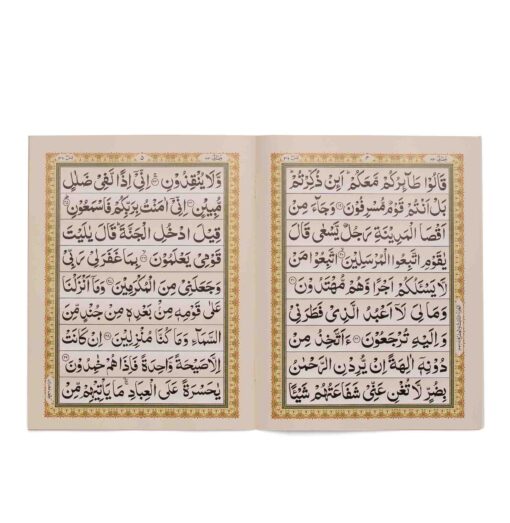 قَالُوْا طَآئِرُكُمْ مَّعَكُمْ ؕ اَئِنْ ذُكِّرْتُمْ ؕ
بَلْ اَنْتُمْ قَوْمٌ مُّسْرِفُوْنَ ۝ وَجَآءَ مِنْ
اَقْصَا الْمَدِيْنَةِ رَجُلٌ يَّسْعٰى قَالَ
يٰقَوْمِ اتَّبِعُوا الْمُرْسَلِيْنَ ۝ اتَّبِعُوْا مَنْ
لَّا يَسْـَٔلُكُمْ اَجْرًا وَّهُمْ مُّهْتَدُوْنَ ۝
وَمَا لِىَ لَاۤ اَعْبُدُ الَّذِىْ فَطَرَنِىْ
وَاِلَيْهِ تُرْجَعُوْنَ ۝ ءَاَتَّخِذُ مِنْ
دُوْنِهٖۤ اٰلِهَةً اِنْ يُّرِدْنِ الرَّحْمٰنُ
بِضُرٍّ لَّا تُغْنِ عَنِّىْ شَفَاعَتُهُمْ شَيْـًٔا
۵
وَّلَا يُنْقِذُوْنِ ۝ اِنِّىْۤ اِذًا لَّفِىْ ضَلٰلٍ
مُّبِيْنٍ ۝ اِنِّىْۤ اٰمَنْتُ بِرَبِّكُمْ فَاسْمَعُوْنِ ۝
قِيْلَ ادْخُلِ الْجَنَّةَ ؕ قَالَ يٰلَيْتَ
قَوْمِىْ يَعْلَمُوْنَ ۝ بِمَا غَفَرَ لِىْ رَبِّىْ
وَجَعَلَنِىْ مِنَ الْمُكْرَمِيْنَ ۝ وَمَاۤ اَنْزَلْنَا
عَلٰى قَوْمِهٖ مِنْۢ بَعْدِهٖ مِنْ جُنْدٍ مِّنَ
السَّمَآءِ وَمَا كُنَّا مُنْزِلِيْنَ ۝ اِنْ كَانَتْ
اِلَّا صَيْحَةً وَّاحِدَةً فَاِذَا هُمْ خٰمِدُوْنَ ۝
يٰحَسْرَةً عَلَى الْعِبَادِ ۚ مَا يَاْتِيْهِمْ مِّنْ